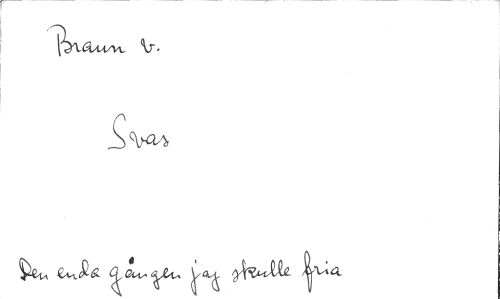 Braun v.
Svas
Den enda gången jag skulle fria